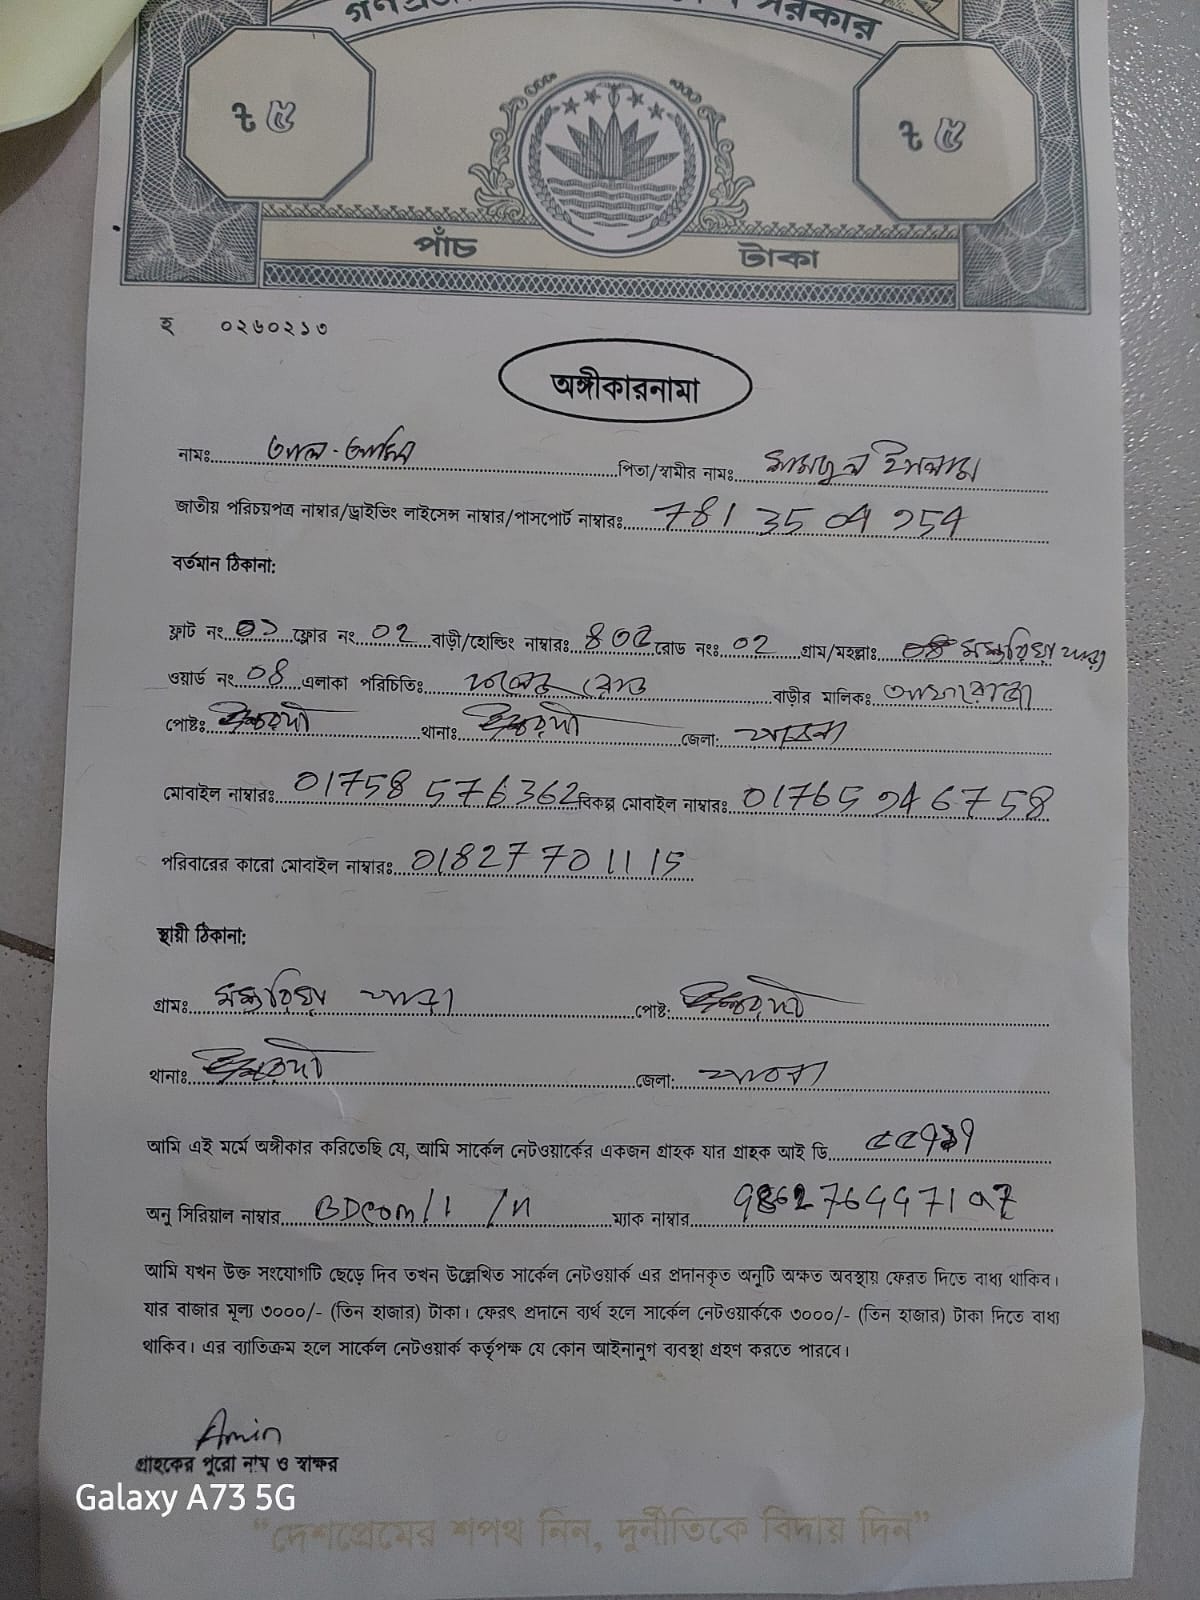 সরকার
৳ ৫ ৳ ৫
পাঁচ টাকা
হ ০২৬০২১৩
অঙ্গীকারনামা
নামঃ আল-আমিন পিতা/স্বামীর নামঃ সামজুল ইসলাম
জাতীয় পরিচয়পত্র নাম্বার/ড্রাইভিং লাইসেন্স নাম্বার/পাসপোর্ট নাম্বারঃ
বর্তমান ঠিকানা:
ফ্লাট নং ০১ ফ্লোর নং ০2 বাড়ী/হোল্ডিং নাম্বারঃ রোড নংঃ ০2 গ্রাম/মহল্লাঃ পাড়া
ওয়ার্ড নং 08 এলাকা পরিচিতিঃ কলেজ রোড বাড়ীর মালিকঃ আফরোজা
পোষ্টঃ ঈশ্বরদী থানাঃ ঈশ্বরদী জেলা: পাবনা
মোবাইল নাম্বারঃ 01758 576362 বিকল্প মোবাইল নাম্বারঃ
পরিবারের কারো মোবাইল নাম্বারঃ 01827701115
স্থায়ী ঠিকানা:
গ্রামঃ পাড়া পোষ্ট: ঈশ্বরদী
থানাঃ ঈশ্বরদী জেলা: পাবনা
আমি এই মর্মে অঙ্গীকার করিতেছি যে, আমি সার্কেল নেটওয়ার্কের একজন গ্রাহক যার গ্রাহক আই ডি
অনু সিরিয়াল নাম্বার ম্যাক নাম্বার
আমি যখন উক্ত সংযোগটি ছেড়ে দিব তখন উল্লেখিত সার্কেল নেটওয়ার্ক এর প্রদানকৃত অনুটি অক্ষত অবস্থায় ফেরত দিতে বাধ্য থাকিব।
যার বাজার মূল্য ৩০০০/- (তিন হাজার) টাকা। ফেরৎ প্রদানে ব্যর্থ হলে সার্কেল নেটওয়ার্ককে ৩০০০/- (তিন হাজার) টাকা দিতে বাধ্য
থাকিব। এর ব্যাতিক্রম হলে সার্কেল নেটওয়ার্ক কর্তৃপক্ষ যে কোন আইনানুগ ব্যবস্থা গ্রহণ করতে পারবে।
Amin
গ্রাহকের পুরো নাম ও স্বাক্ষর
Galaxy A73 5G
“দেশপ্রেমের শপথ নিন, দুর্নীতিকে বিদায় দিন”